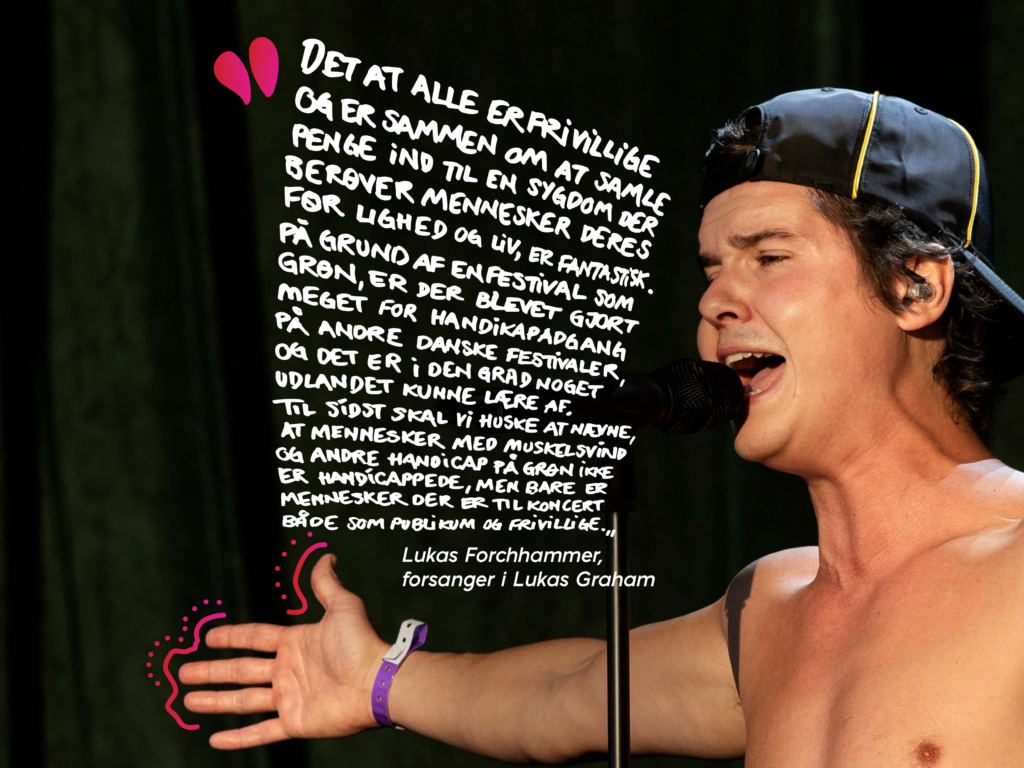 DET AT ALLE ER FRIVILLIGE
OG ER SAMMEN OM AT SAMLE
PENGE IND TIL EN SYGDOM DER
BERØVER MENNESKER DERES
FØR LIGHED OG LIV, ER FANTASTISK.
PÅ GRUND AF EN FESTIVAL SOM
GRØN, ER DER BLEVET GJORT
MEGET FOR HANDIKAPADGANG
PÅ ANDRE DANSKE FESTIVALER,
OG DET ER I DEN GRAD NOGET
UDLANDET KUNNE LÆRE AF.
TIL SIDST SKAL VI HUSKE AT NÆVNE,
AT MENNESKER MED MUSKELSVIND
OG ANDRE HANDICAP PÅ GRØN IKKE
ER HANDICAPPEDE, MEN BARE ER
MENNESKER DER ER TIL KONCERT
BÅDE SOM PUBLIKUM OG FRIVILLIGE."
Lukas Forchhammer,
forsanger i Lukas Graham